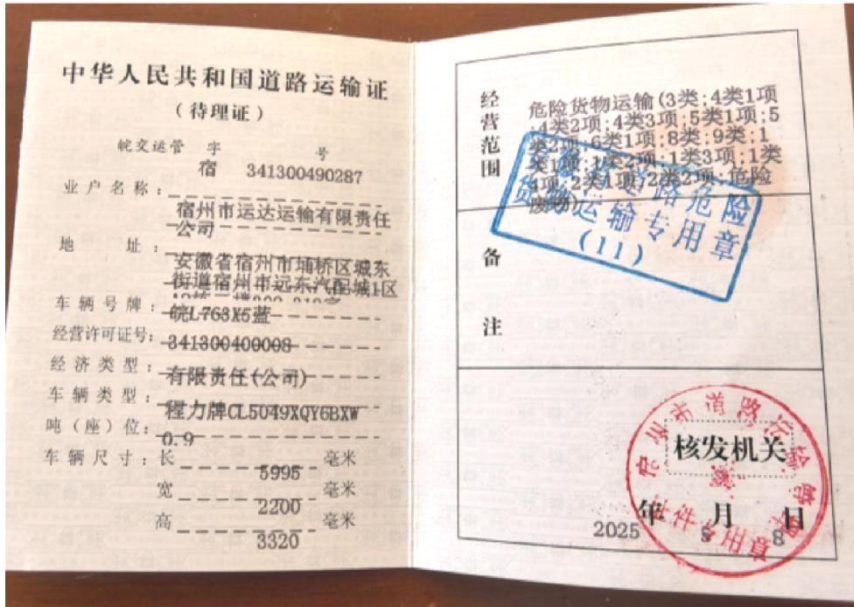 中华人民共和国道路运输证
（待理证）
皖交运管 字 号
宿 341300490287
业户名称：
宿州市运达运输有限责任
公司
地 址：
安徽省宿州市埇桥区城东
街道宿州市远东汽配城1区
车辆号牌：
皖L763X5蓝
经营许可证号：
341300400008
经济类型：
有限责任(公司)
车辆类型：
程力牌CL5049XQY6BXW
吨（座）位：
0.9
车辆尺寸：长 5995 毫米
宽 2200 毫米
高 3320 毫米
经营范围
危险货物运输(3类;4类1项
;4类2项;4类3项;5类1项;5
类2项;6类1项;8类;9类;1
类1项;1类2项;1类3项;1类
4项;2类1项;2类2项;危险
废物)
路危险
货物运输专用章
(11)
备注
核发机关
2025年 5月 8日
州市道路运输管理
证件专用章